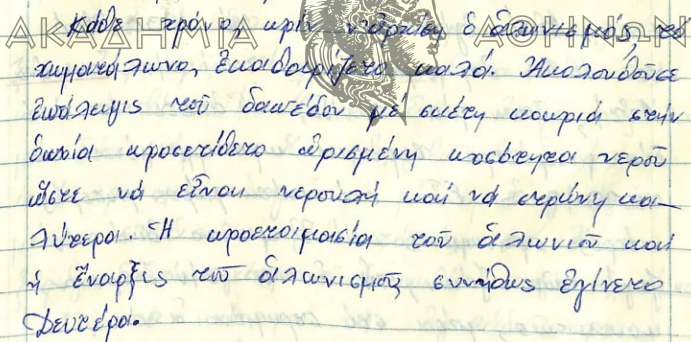 ΑΚΑΔΗΜΙΑ ΑΘΗΝΩΝ
Κάθε χρόνο, πρίν ν' ἀρχίση ὁ ἁλωνισμός, τό
χωματάλωνο, ἐκαθαρίζετο καλά. Ἀκολουθοῦσε
ἐπάλειψις τοῦ δαπέδου μέ σκέτη κοπριά στήν
ὁποία προσετίθετο ὡρισμένη ποσότητα νεροῦ
ὥστε νά εἶναι νερουλή καί νά στρώνη κα-
λύτερα. Ἡ προετοιμασία τοῦ ἁλωνιοῦ καί
ἡ ἔναρξις τοῦ ἁλωνισμοῦ συνήθως ἐγίνετο
Δευτέρα.